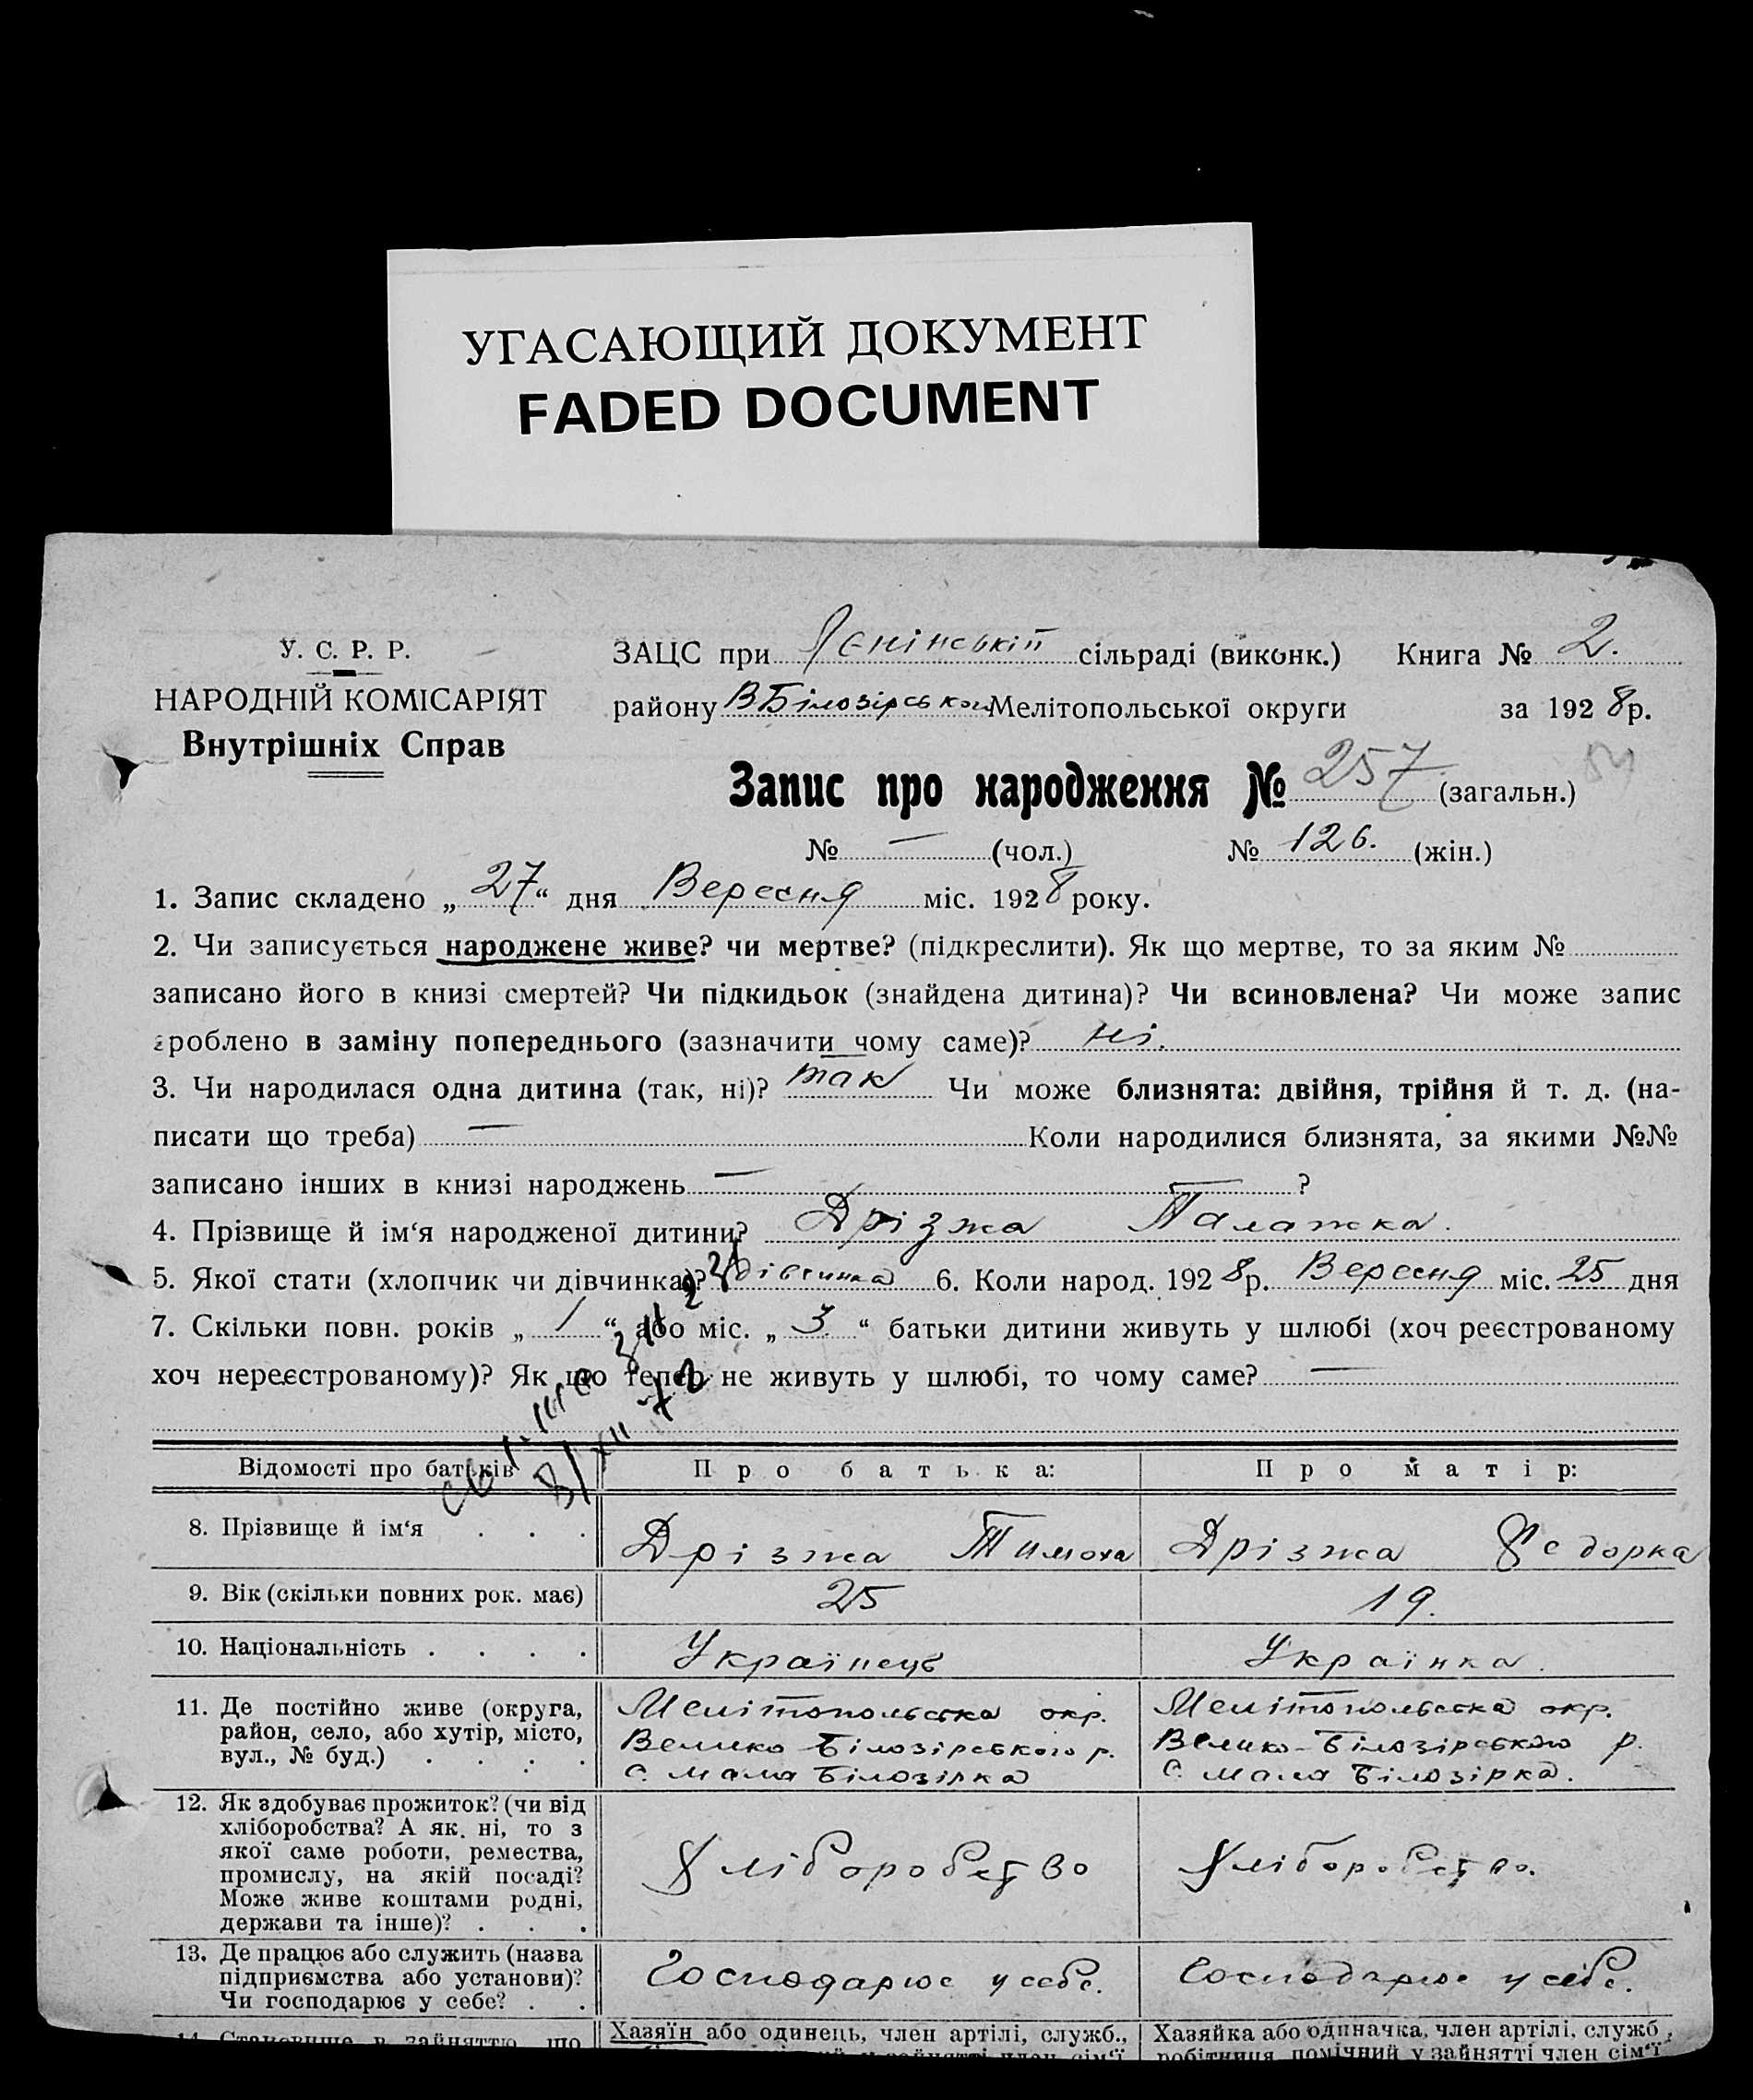 УГАСАЮЩИЙ ДОКУМЕНТ
FADED DOCUMENT
У. С. Р. Р.
НАРОДНІЙ КОМІСАРІЯТ
Внутрішніх Справ
ЗАЦС при Ленінській сільраді (виконк.) Книга № 2.
району ВБілозірськом Мелітопольської округи за 1928р.
Запис про народження № 257 (загальн.)
№ — (чол.) № 126. (жін.)
1. Запис складено „27“ дня Вересня міс. 1928 року.
2. Чи записується народжене живе? чи мертве? (підкреслити). Як що мертве, то за яким №
записано його в книзі смертей? Чи підкидьок (знайдена дитина)? Чи всиновлена? Чи може запис
зроблено в заміну попереднього (зазначити чому саме)? ні.
3. Чи народилася одна дитина (так, ні)? так Чи може близнята: двійня, трійня й т. д. (на-
писати що треба) — Коли народилися близнята, за якими №№
записано інших в книзі народжень — ?
4. Прізвище й ім‘я народженої дитини? Дрізжа Палажка.
5. Якої стати (хлопчик чи дівчинка)? дівчинка 6. Коли народ. 1928р. Вересня міс. 25 дня
7. Скільки повн. років „1“ або міс. „3“ батьки дитини живуть у шлюбі (хоч реєстрованому
хоч нереєстрованому)? Як що тепер не живуть у шлюбі, то чому саме? —
Відомості про батьків
Про батька:
Про матір:
8. Прізвище й ім‘я . . .
Дрізжа Тимоха
Дрізжа Федорка
9. Вік (скільки повних рок. має)
25
19.
10. Національність . . . .
Українець
Українка.
11. Де постійно живе (округа,
район, село, або хутір, місто,
вул., № буд.) . . . .
Мелітопольська окр.
Велико Білозірського р.
с. мала Білозірка
Мелітопольська окр.
Велико-Білозірського р.
с. мала Білозірка.
12. Як здобуває прожиток? (чи від
хліборобства? А як ні, то з
якої саме роботи, ремества,
промислу, на якій посаді?
Може живе коштами родні,
держави та інше)? . . .
Хліборобство
Хліборобство.
13. Де працює або служить (назва
підприємства або установи)?
Чи господарює у себе? . .
Господарює у себе.
Господарює у себе.
14. Становище в зайняттю що
Хазяїн або одинець, член артілі, служб.,
Хазяйка або одиначка, член артілі, служб,
робітниця, помічний у зайнятті член сім‘ї